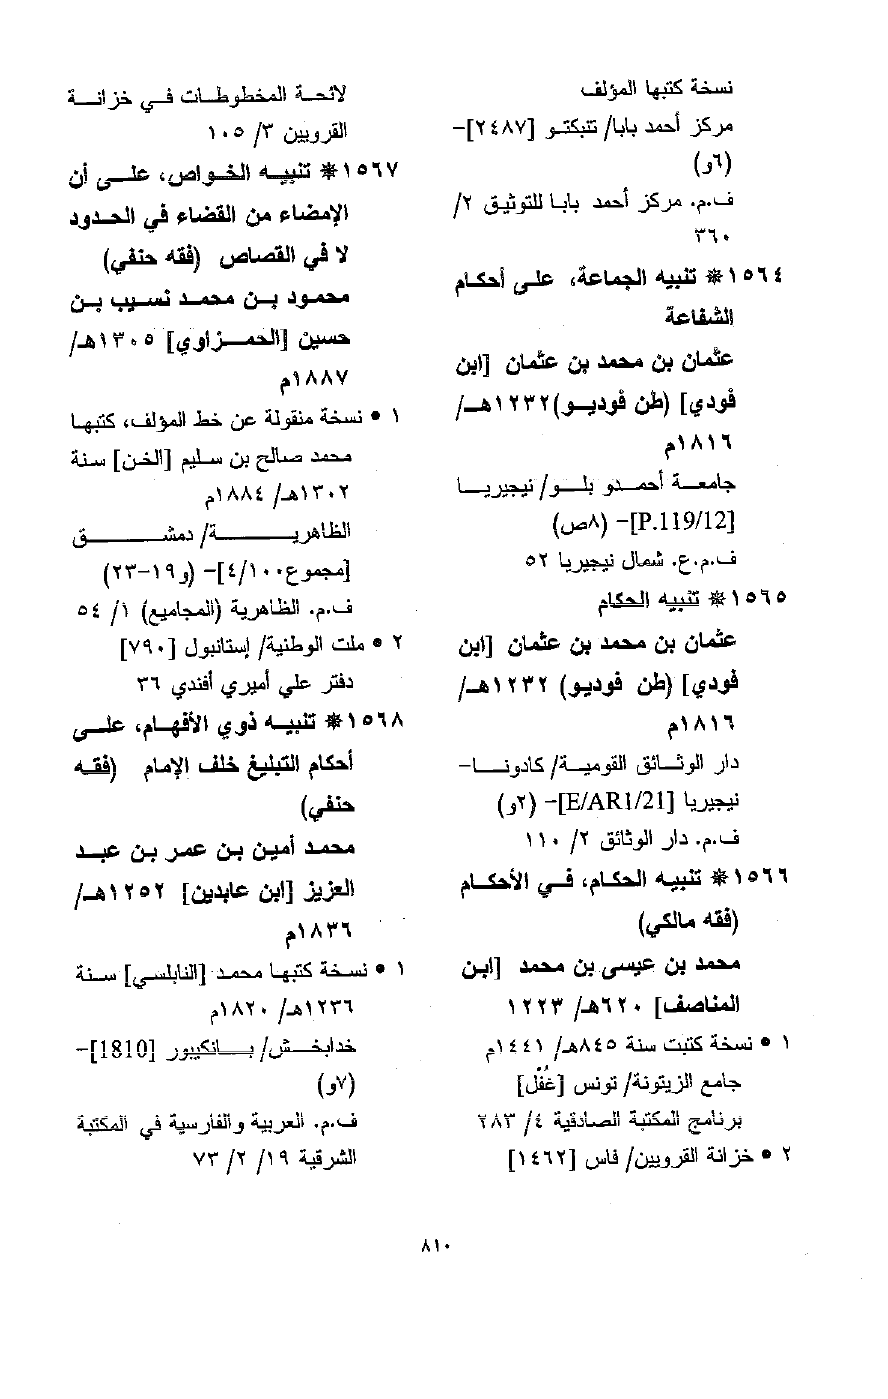 نسخة كتبها المؤلف
مركز أحمد بابا/ تنبكتو [٢٤٨٧]-
(٦و)
ف.م. مركز أحمد بابا للتوثيق ٢/
٣٦٠
١٥٦٤* تنبيه الجماعة، على أحكام
الشفاعة
عثمان بن محمد بن عثمان [ابن
فودي] (طن فوديو)١٢٣٢هـ/
١٨١٦م
جامعة أحمدو بلو/ نيجيريا
[P.119/12]- (٨ص)
ف.م.ع. شمال نيجيريا ٥٢
١٥٦٥* تنبيه الحكام
عثمان بن محمد بن عثمان [ابن
فودي] (طن فوديو) ١٢٣٢هـ/
١٨١٦م
دار الوثائق القومية/ كادونا-
نيجيريا [E/AR1/21]- (٢و)
ف.م. دار الوثائق ٢/ ١١٠
١٥٦٦* تنبيه الحكام، في الأحكام
(فقه مالكي)
محمد بن عيسى بن محمد [ابن
المناصف] ٦٢٠هـ/ ١٢٢٣
١ • نسخة كتبت سنة ٨٤٥هـ/ ١٤٤١م
جامع الزيتونة/ تونس [غُفْل]
برنامج المكتبة الصادقية ٤/ ٢٨٣
٢ • خزانة القرويين/ فاس [١٤٦٢]
لائحة المخطوطات في خزانة
القرويين ٣/ ١٠٥
١٥٦٧* تنبيه الخواص، على أن
الإمضاء من القضاء في الحدود
لا في القصاص (فقه حنفي)
محمود بن محمد نسيب بن
حسين [الحمزاوي] ١٣٠٥هـ/
١٨٨٧م
١ • نسخة منقولة عن خط المؤلف، كتبها
محمد صالح بن سليم [الخن] سنة
١٣٠٢هـ/ ١٨٨٤م
الظاهرية/ دمشق
[مجموع٤/١٠٠]- (و١٩-٢٣)
ف.م. الظاهرية (المجاميع) ١/ ٥٤
٢ • ملت الوطنية/ إستانبول [٧٩٠]
دفتر علي أميري أفندي ٣٦
١٥٦٨* تنبيه ذوي الأفهام، على
أحكام التبليغ خلف الإمام (فقه
حنفي)
محمد أمين بن عمر بن عبد
العزيز [ابن عابدين] ١٢٥٢هـ/
١٨٣٦م
١ • نسخة كتبها محمد [النابلسي] سنة
١٢٣٦هـ/ ١٨٢٠م
خدابخش/ بانكيبور [1810]-
(٧و)
ف.م. العربية والفارسية في المكتبة
الشرقية ١٩/ ٢/ ٧٣
٨١٠